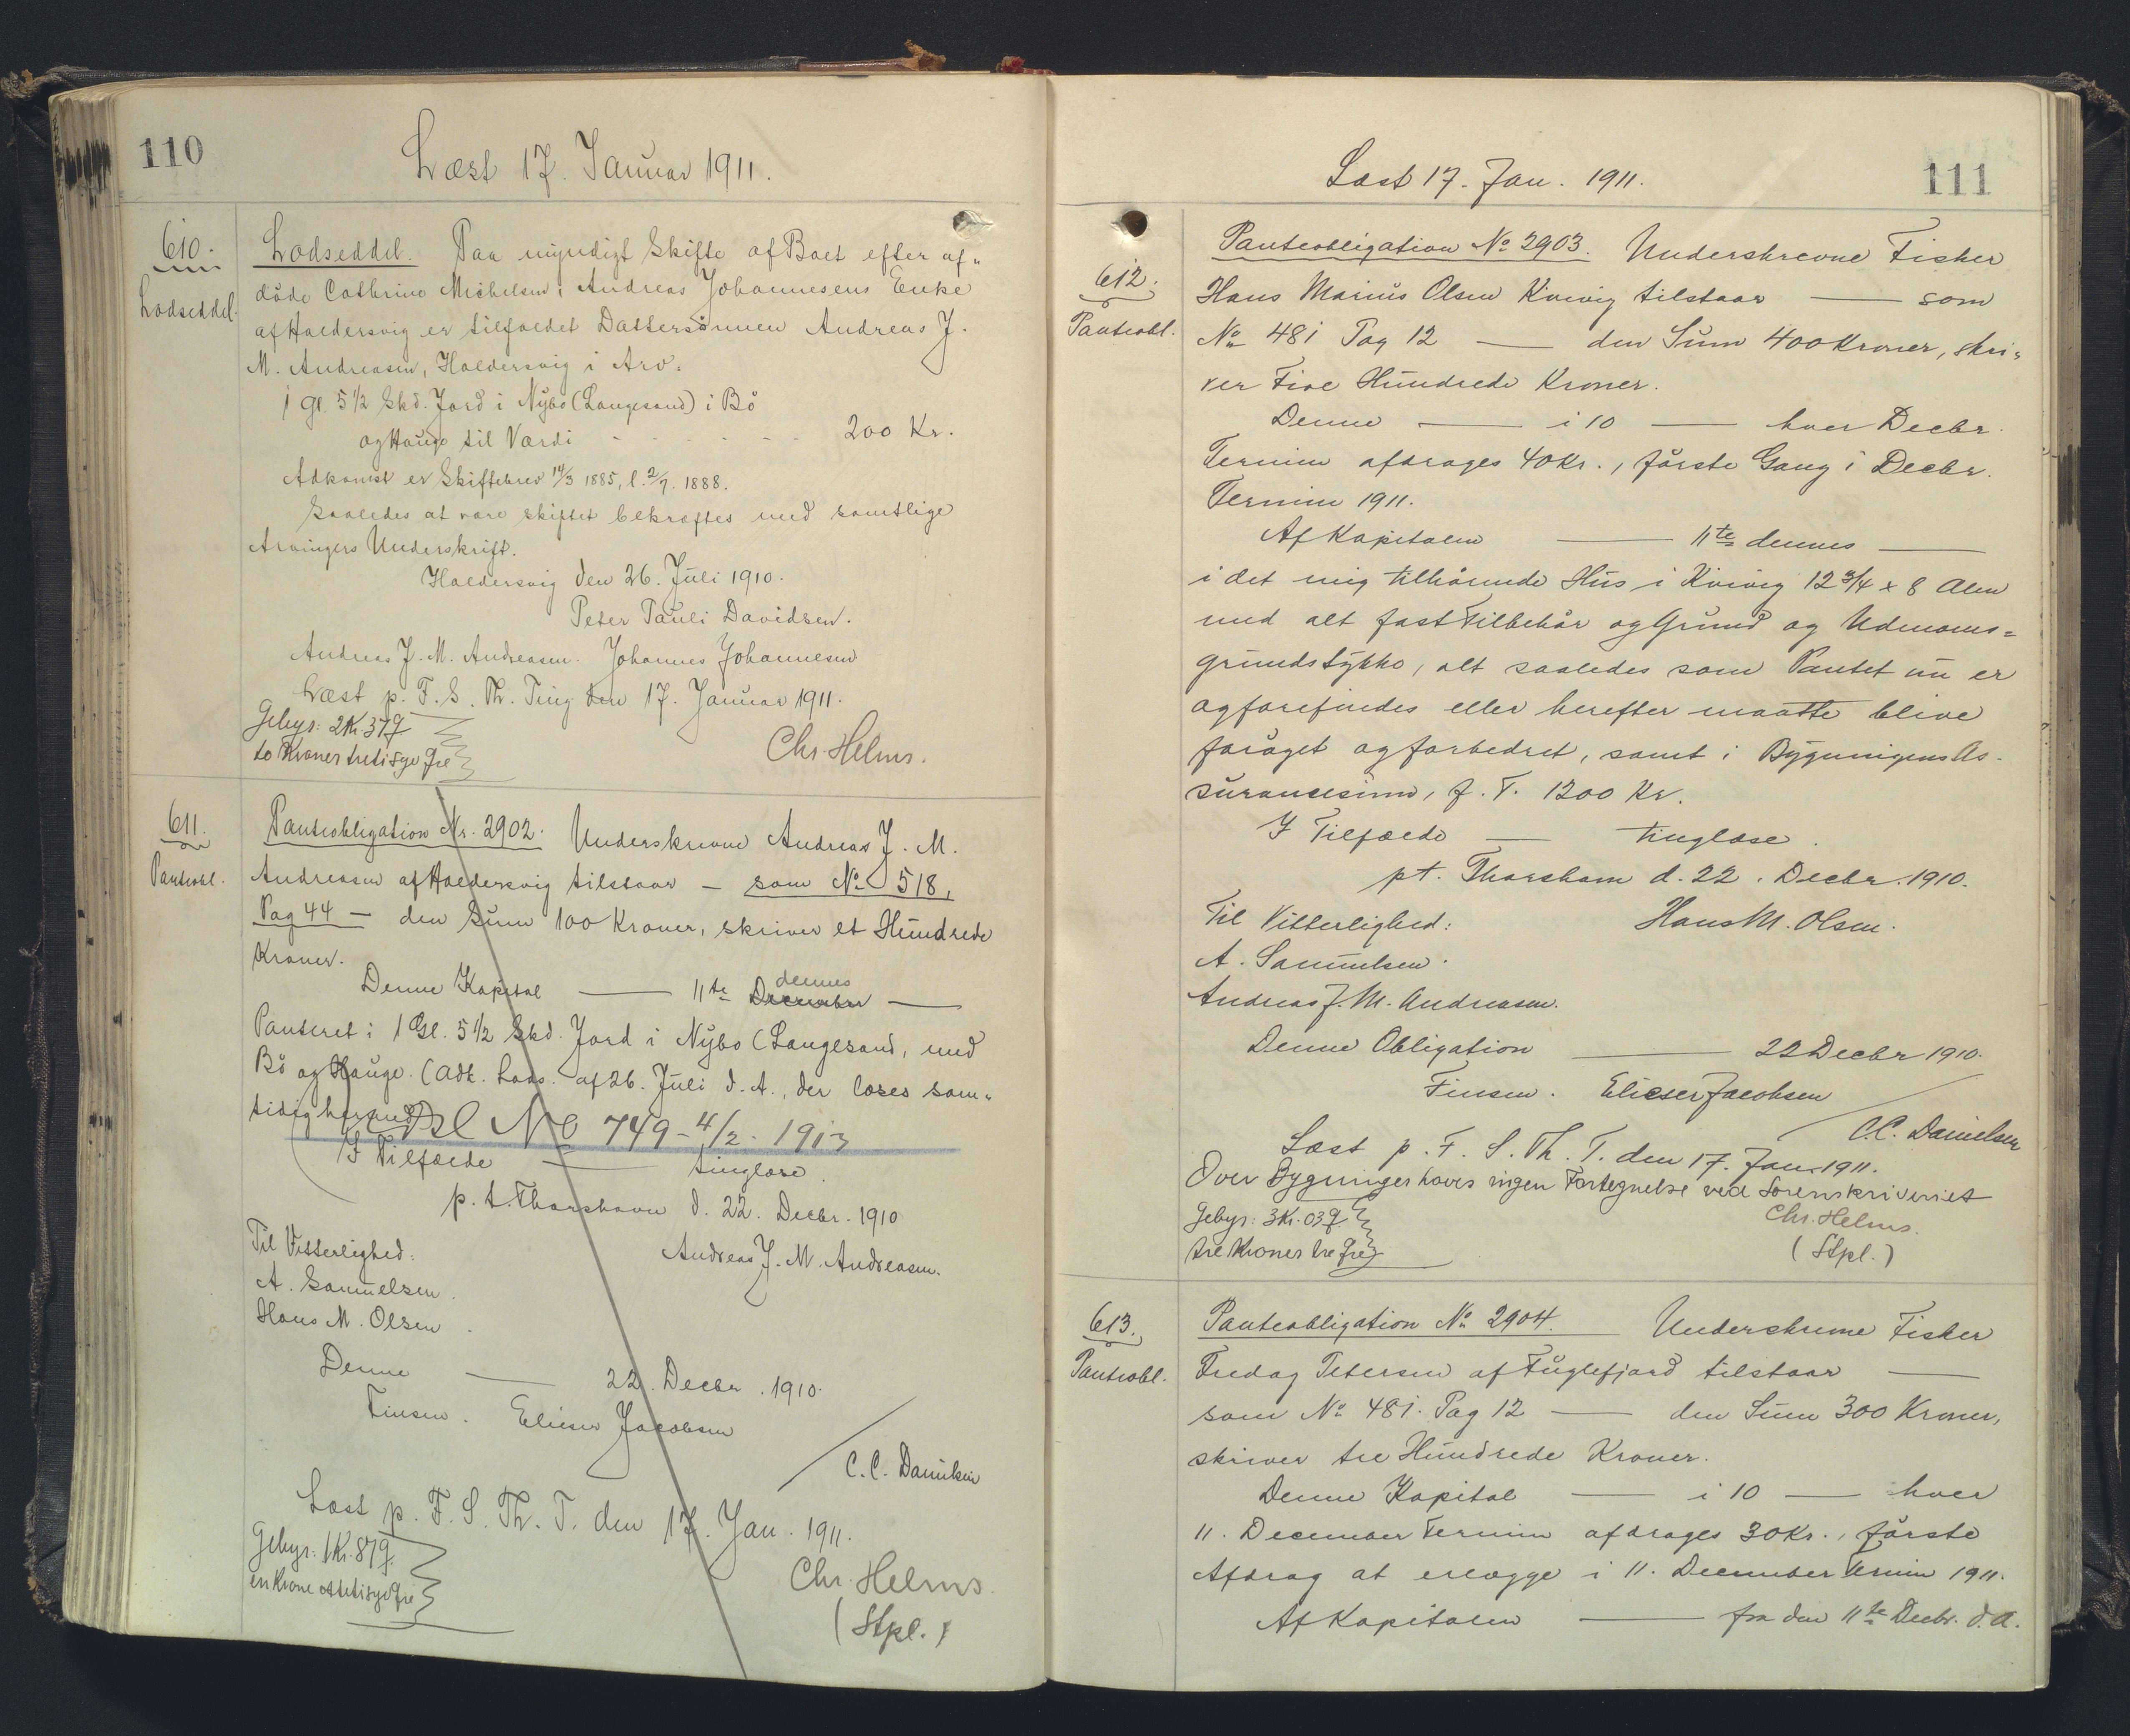 110
Læst 17. Januar 1911.
610.
Lodseddel.
Lodseddel. Paa myndigt Skifte af Boet efter af-
døde Cathrine Michelsen, Andreas Johannesens Enke
af Haldersvig er tilfaldet Dattersønnen Andreas J.
M. Andreasen, Haldersvig i Arv:
1 Gl. 5 1/2 Skd. Jord i Nybø (Langesand) i Bø
og Hauge til Værdi - - - - - - 200 Kr.
Adkomst er Skiftebrev 14/3 1885, l. 2/7. 1888.
Saaledes at være skiftet bekræftes med samtlige
Arvingers Underskrift.
Haldersvig den 26. Juli 1910.
Peter Pauli Davidsen.
Andreas J. M. Andreasen. Johannes Johannesen
Læst p. F. S. Th. Ting den 17. Januar 1911.
Gebyr: 2 Kr. 37 Ø
to Kroner tretisyv Øre
Chr. Helms.
611.
Panteobl.
Panteobligation Nr. 2902. Underskrevne Andreas J. M.
Andreasen af Haldersvig tilstaar — som No 518,
Pag 44 — den Sum 100 Kroner, skriver et Hundrede
Kroner.
Denne Kapital — 11te December dennes —
Panteret i 1 Gl. 5 1/2 Skd. Jord i Nybø (Langesand, med
Bø og Hauge. (Adk. Lods. af 26. Juli d. A., der læses sam-
tidig hermed)
Asl No 749 - 4/2 - 1913
I Tilfælde — tinglæse.
p. t. Thorshavn d. 22. Decbr. 1910
Til Vitterlighed: Andreas J. M. Andreasen.
A. Samuelsen.
Hans M. Olsen.
Denne — 22. Decbr. 1910.
Finsen. Elieser Jacobsen
/ C. C. Danielsen
Læst p. F. S. Th. T. den 17. Jan. 1911.
Gebyr: 1 Kr. 87 Ø.
en Krone ottetisyv Øre
Chr. Helms.
(Stpl.)
111
Læst 17. Jan. 1911.
612.
Panteobl.
Panteobligation No 2903. Underskrevne Fisker
Hans Marius Olsen Kvivig tilstaar — som
No 481 Pag 12 — den Sum 400 Kroner, skri-
ver Fire Hundrede Kroner.
Denne — i 10 — hver Decbr.
Termin afdrages 40 Kr., første Gang i Decbr.
Termin 1911.
Af Kapitalen — 11te dennes —
i det mig tilhørende Hus i Kvivig 12 3/4 x 8 Alen
med alt fast Tilbehør og Grund og Udenoms-
grundstykke, alt saaledes som Pantet nu er
og forefindes eller herefter maatte blive
forøget og forbedret, samt i Bygningens As-
surancesum, f. T. 1200 Kr.
I Tilfælde — tinglæse.
pt. Thorshavn d. 22. Decbr. 1910.
Til Vitterlighed: Hans M. Olsen.
A. Samuelsen.
Andreas J. M. Andreasen.
Denne Obligation — 22 Decbr 1910.
Finsen. Elieser Jacobsen
/ C. C. Danielsen
Læst p. F. S. Th. T. den 17. Jan. 1911.
Over Bygninger haves ingen Fortegnelse ved Sorenskriveriet
Gebyr: 3 Kr. 03 Ø.
tre Kroner tre Øre
Chr. Helms.
(Stpl.)
613.
Panteobl.
Panteobligation No 2904. Underskrevne Fisker
Fredag Petersen af Fuglefjord tilstaar —
som No 481. Pag 12 — den Sum 300 Kroner,
skriver tre Hundrede Kroner.
Denne Kapital — i 10 — hver
11. December Termin afdrages 30 Kr., første
Afdrag at erlægge i 11. December Termin 1911.
Af Kapitalen — fra den 11te Decbr. d. A.